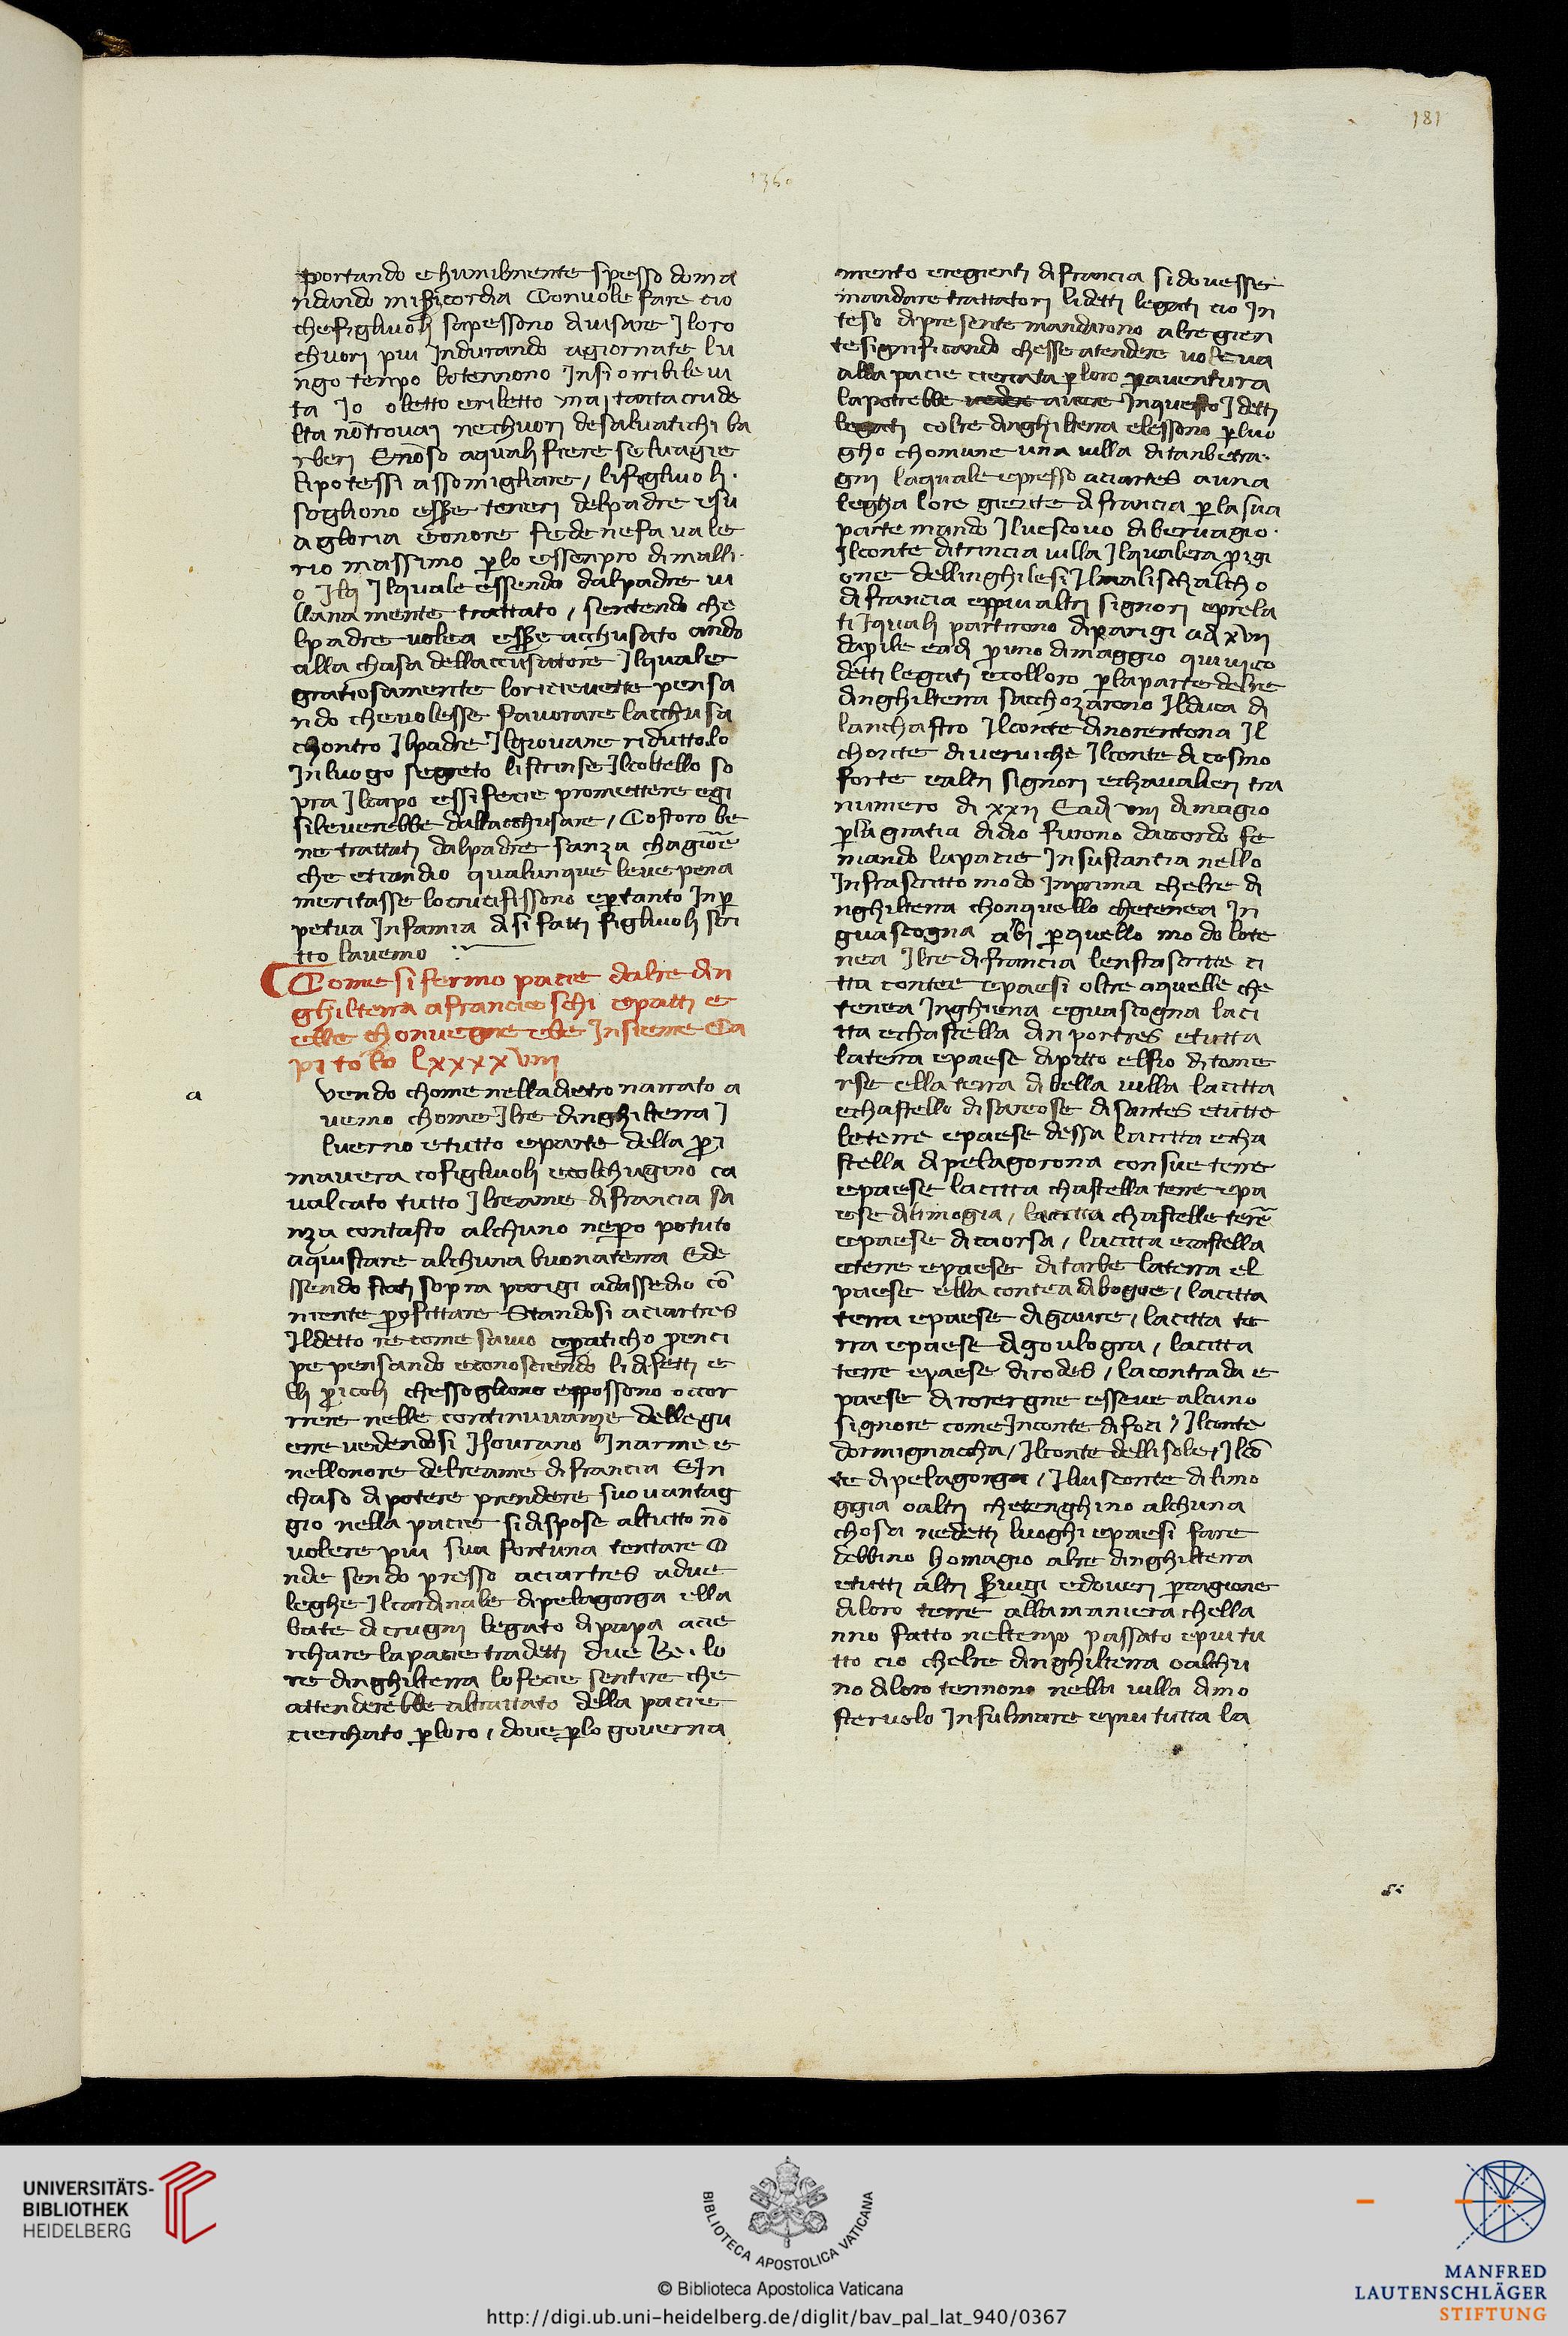 181
1360
portando e humilmente spesso doma
ndando misericordia Convole fare cio
che figluvoli sapessono divisare J loro
chuori piu Jndurando a giornate lu
ngo tenpo lotennono Jnsi orribile vi
ta Jo o letto eriletto maj tanta crude
lta no trovaj ne chuori de salvatichi ba
rberi Enoso a quali fiere selvagie
li potessi assomigliare / li figluvoli
sogliono essere teneri del padre e su
a gloria e onore fede ne fa vale
rio massimo per lo essenpro di malli
o Jlquale essendo dal padre vi
llanamente trattato / sentendo che
l padre volea essere acchusato ando
alla chasa dellaccusatore Jlquale
gratiosamente lo ricievette pensa
ndo che volesse favorare lacchusa
chontro Jl padre Jl giovane riduttolo
Jnluogo segreto li strinse Jl coltello so
pra Jl capo essi fecie promettere egi
si leverebbe dallacchusare / Costoro be
ne trattati dal padre sanza chagione
che etiandio qualunque leve pena
meritasse lo crucifissono e pertanto Jn per
petua Jnfamia di si fatti figluvoli scri
tto lavemo
Come si fermo pacie dal re din
ghilterra a francieschi e patti e
elle chonvegne ebe Jnsieme Ca
pitolo lxxxxviii
a
vendo chome nella dietro narrato a
vemo chome Jl re dinghilterra J
lverno e tutto e parte della pri
mavera co figluvoli e col chugino ca
valcato tutto Jl reame di francia sa
nza contasto alchuno ne pero potuto
aquistare alchuna buona terra Ede
ssendo stati sopra parigi ad assedio co
niente profittare Standosi a ciartres
Jl detto re come savio e praticho prenci
pe pensando e conosciendo li difetti e
lli pericoli che ssogliono e possono occor
rere nelle continuvanze delle gu
erre vedendosi Jl sovrano Jn arme e
nellonore del reame di francia EJn
chaso di potere prendere suo vantag
gio nella pacie si dispose al tutto no
volere piu sua fortuna tentare O
nde sendo presso a ciartres a due
leghe Jl cardinale di pelagorga ella
bate di crugni legato di papa a cie
rchare la pacie tra detti due Re lo
re dinghilterra lo fecie sentire che
attenderebbe al trattato della pacie
cierchato per loro / dove per lo governa
mento e regienti di francia si dovesse
mandare trattatori li detti legati cio Jn
teso di presente mandarono al regien
te significando che sse atendere voleva
alla pacie cierchata per loro per aventura
la potrebbe vedere avere Jn questo J detti
legati col re dinghilterra elessono per luo
gho chomune una villa di tanbetra
gni la quale e presso a ciartes a una
legha lo regiente di francia per la sua
parte mando Jl vescovo di bervagio
Jl conte di trincia villa Jl qualera prigi
one dellinghilesi Jl malischalcho
di francia e ppiu altri signori e prela
ti Jquali partirono di parigi adi xxvii
daprile e adi primo di maggio quivi co
detti legati e colloro per la parte del re
dinghilterra sacchozarono Jl duca di
lanchastro Jl conte di norentona Jl
chonte di verviche Jl conte di cosmo
forte e altri signori e chavalieri tra
numero di xxii Eadi viii di magio
per la gratia di dio furono dacordo fe
rmando la pacie Jn sustantia nello
Jnfrascritto modo Jnprima chel re di
nghilterra chon quello che tenea Jn
guascogna abi per quello modo lo te
nea Jl re di francia le nfrascritte ci
tta contee e paesi oltre a quelle che
tenea Jnghiena e guascogna la ci
tta e chastella din portres e tutta
la terra e paese di pitto el fio di tome
rse e lla terra di bella villa la citta
e chastello di sareose di santes e tutte
le terre e paese dessa la citta e cha
stella di pelagorona con sue terre
e paese la citta chastella terre e pa
ese di limogia / la citta chastelle terre
e paese di caorsa / la citta e castella
e terre e paese di tarbe la terra el
paese ella contea di bogue / la citta
terra e paese di gaure / la citta te
rra e paese di goulogra / la citta
terre e paese di rodes / la contrada e
paese di rorergne esseve alcuno
signore come Jnconte di foci / Jl conte
dormignaccha / Jl conte dellisole / Jl co
te di pelagorga / Jl visconte di limo
ggia o altri che tenghino alchuna
chosa ne detti luoghi e paesi fare
debbino homagio al re dinghilterra
e tutti altri servigi e doveri per cagione
di loro terre alla maniera che lla
nno fatto nel tenpo passato e piu tu
tto cio chel re dinghilterra o alchu
no di loro tennono nella villa di mo
stervolo Jnsulmare e piu tutta la
UNIVERSITÄTS-
BIBLIOTHEK
HEIDELBERG
BIBLIOTECA APOSTOLICA VATICANA
© Biblioteca Apostolica Vaticana
http://digi.ub.uni-heidelberg.de/diglit/bav_pal_lat_940/0367
MANFRED
LAUTENSCHLÄGER
STIFTUNG